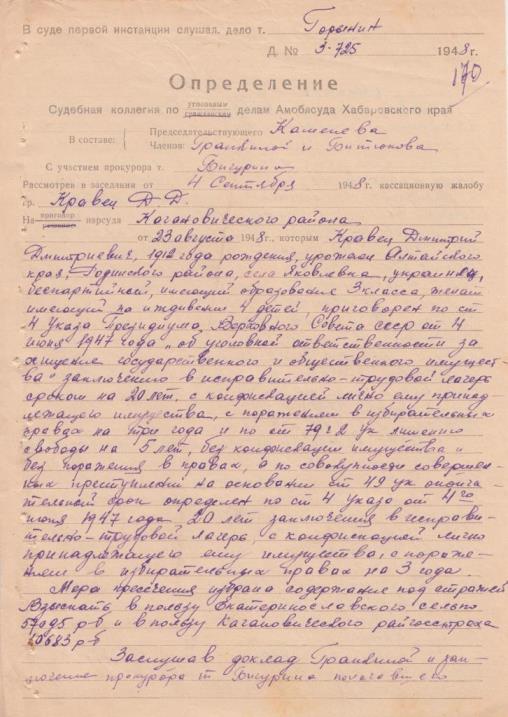 В суде первой инстанции слушал. дело т. Горынин
Д. № 3-725 1948г.
170
Определение
Судебная коллегия по уголовным гражданским делам Амоблсуда Хабаровского края
В составе: Председательствующего Камшева
Членов: Гранкиной и
С участием прокурора т. Бигурина
Рассмотрев в заседании от 4 Сентября 1948г. кассационную жалобу
гр. Кравец Д.Д.
На приговор решение нарсуда Кагановического района
от 23 августа 1948г., которым Кравец Дмитрий
Дмитриевич, 1912 года рождения, урожен Алтайского
края, Родинского района, села Яковлевка, украинец,
беспартийный, имеющий образование 3 класса, женат
имеющий на иждивении 4 детей, приговорен по ст
4 Указа Президиума Верховного Совета СССР от 4
июня 1947 года „об уголовной ответственности за
хищение государственного и общественного имущес
тва" заключению в исправительно-трудовой лагерь
сроком на 20 лет, с конфискацией лично ему принад-
лежащего имущества, с поражением в избирательных
правах на три года и по ст 79 ч 2 УК лишению
свободы на 5 лет, без конфискации имущества и
без поражения в правах, а по совокупности совершен-
ных преступлений на основании ст 49 УК оконча-
тельной срок определен по ст 4 указа от 4го
июня 1947 года 20 лет заключения в исправи-
тельно-трудовой лагерь, с конфискацией лично
принадлежащего ему имущества, с пораже-
нием в избирательных правах на 3 года.
Мера пресечения избрана содержание под стражей
Взыскать в пользу Екатеринославского сельпо
руб и в пользу Кагановического райгосстраха
10683 руб
Заслушав доклад Гранкиной и зак-
лючение прокурора т Бигурина полагавшего